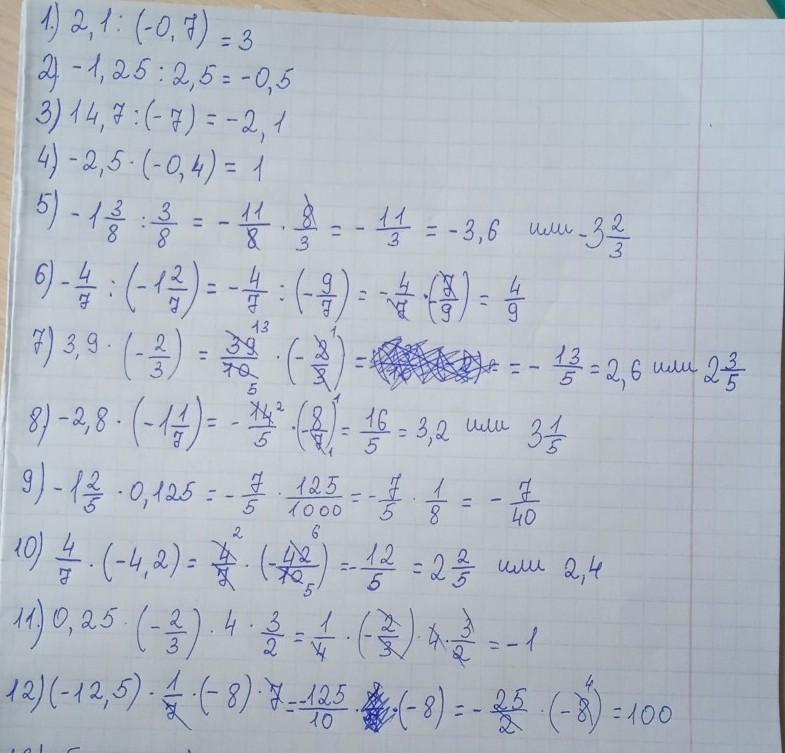 1.) 2,1 : (-0,7) = 3
2) -1,25 : 2,5 = -0,5
3) 14,7 : (-7) = -2,1
4) -2,5 · (-0,4) = 1
5) -1 3/8 : 3/8 = - 11/8 · 8/3 = - 11/3 = -3,6 или -3 2/3
6) - 4/7 : (-1 2/7) = - 4/7 : (- 9/7) = - 4/7 · (- 7/9) = 4/9
7) 3,9 · (- 2/3) = 39 13/10 5 · (- 2 1/3) = = - 13/5 = 2,6 или 2 3/5
8) -2,8 · (-1 1/7) = - 14 2/5 · (- 8/7) 1 1 = 16/5 = 3,2 или 3 1/5
9) -1 2/5 · 0,125 = - 7/5 · 125/1000 = - 7/5 · 1/8 = - 7/40
10) 4/7 · (-4,2) = 4 2/7 · (- 42 6/10 5) = - 12/5 = 2 2/5 или 2,4
11.) 0,25 · (- 2/3) · 4 · 3/2 = 1/4 · (- 2/3) · 4 · 3/2 = -1
12) (-12,5) · 1/7 · (-8) · 7 = -125/10 · (-8) = - 25/2 · (-8 4) = 100